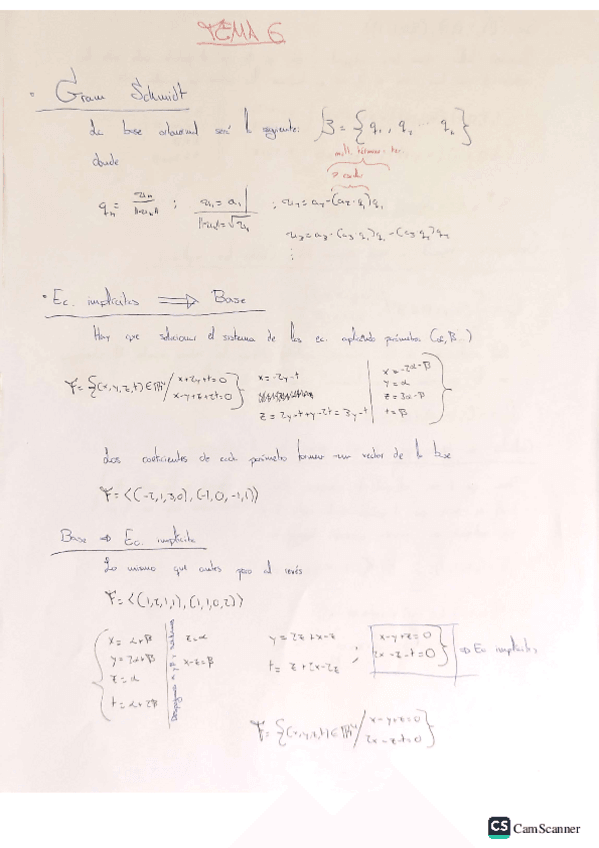 TEMA 6
• Gram Schmidt
La base ortonormal será la siguiente: B = {q₁, q₂ ... qₙ}
donde
qₙ = uₙ/||uₙ|| ; u₁ = a₁ ; u₂ = a₂ - (a₂·q₁)q₁
u₃ = a₃ - (a₃·q₁)q₁ - (a₃·q₂)q₂
⋮
• Ec. implícitas ⟹ Base
Hay que solucionar el sistema de las ec. aplicando parámetros (α, β...)
F = {(x,y,z,t) ∈ ℝ⁴ / x+2y+t=0
x-y+z+2t=0} x = -2y-t
z = 2y+t+y-2t = 3y-t
x = -2α-β
y = α
z = 3α-β
t = β
Los coeficientes de cada parámetro forman un vector de la base
F = <(-2,1,3,0), (-1,0,-1,1)>
Base ⇒ Ec. implícita
Lo mismo que antes pero al revés
F = <(1,2,1,1), (1,1,0,2)>
x = α+β
y = 2α+β
z = α
t = α+2β
z = α
x-z = β
y = 2z+x-z
t = z+2x-2z ;
x-y+z=0
2x-z-t=0 ⇒ Ec implícitas
F = {(x,y,z,t) ∈ ℝ⁴ / x-y+z=0
2x-z-t=0}
CS CamScanner